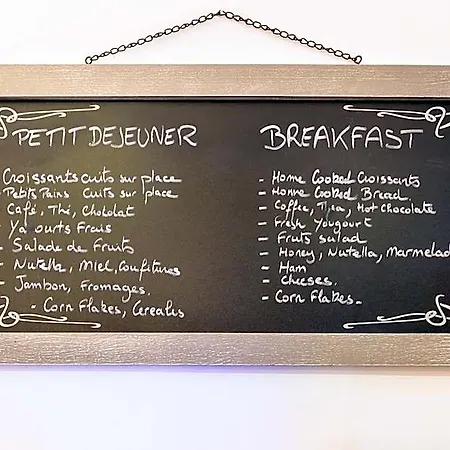 PETIT DEJEUNER
Croissants cuits sur place
- Petits Pains cuits sur place
Café, Thé, Chocolat
- Yaourts Frais
- Salade de Fruits
- Nutella, Miel, Confitures
- Jambon, Fromages.
- Corn Flakes, Cereales
BREAKFAST
- Home Cooked Croissants
- Home Cooked Bread.
- Coffee, Tea, Hot Chocolate
- Fresh Yougourt
- Fruts salad
- Honey, Nutella, Marmelad
- Ham
- Cheeses.
- Corn Flakes.